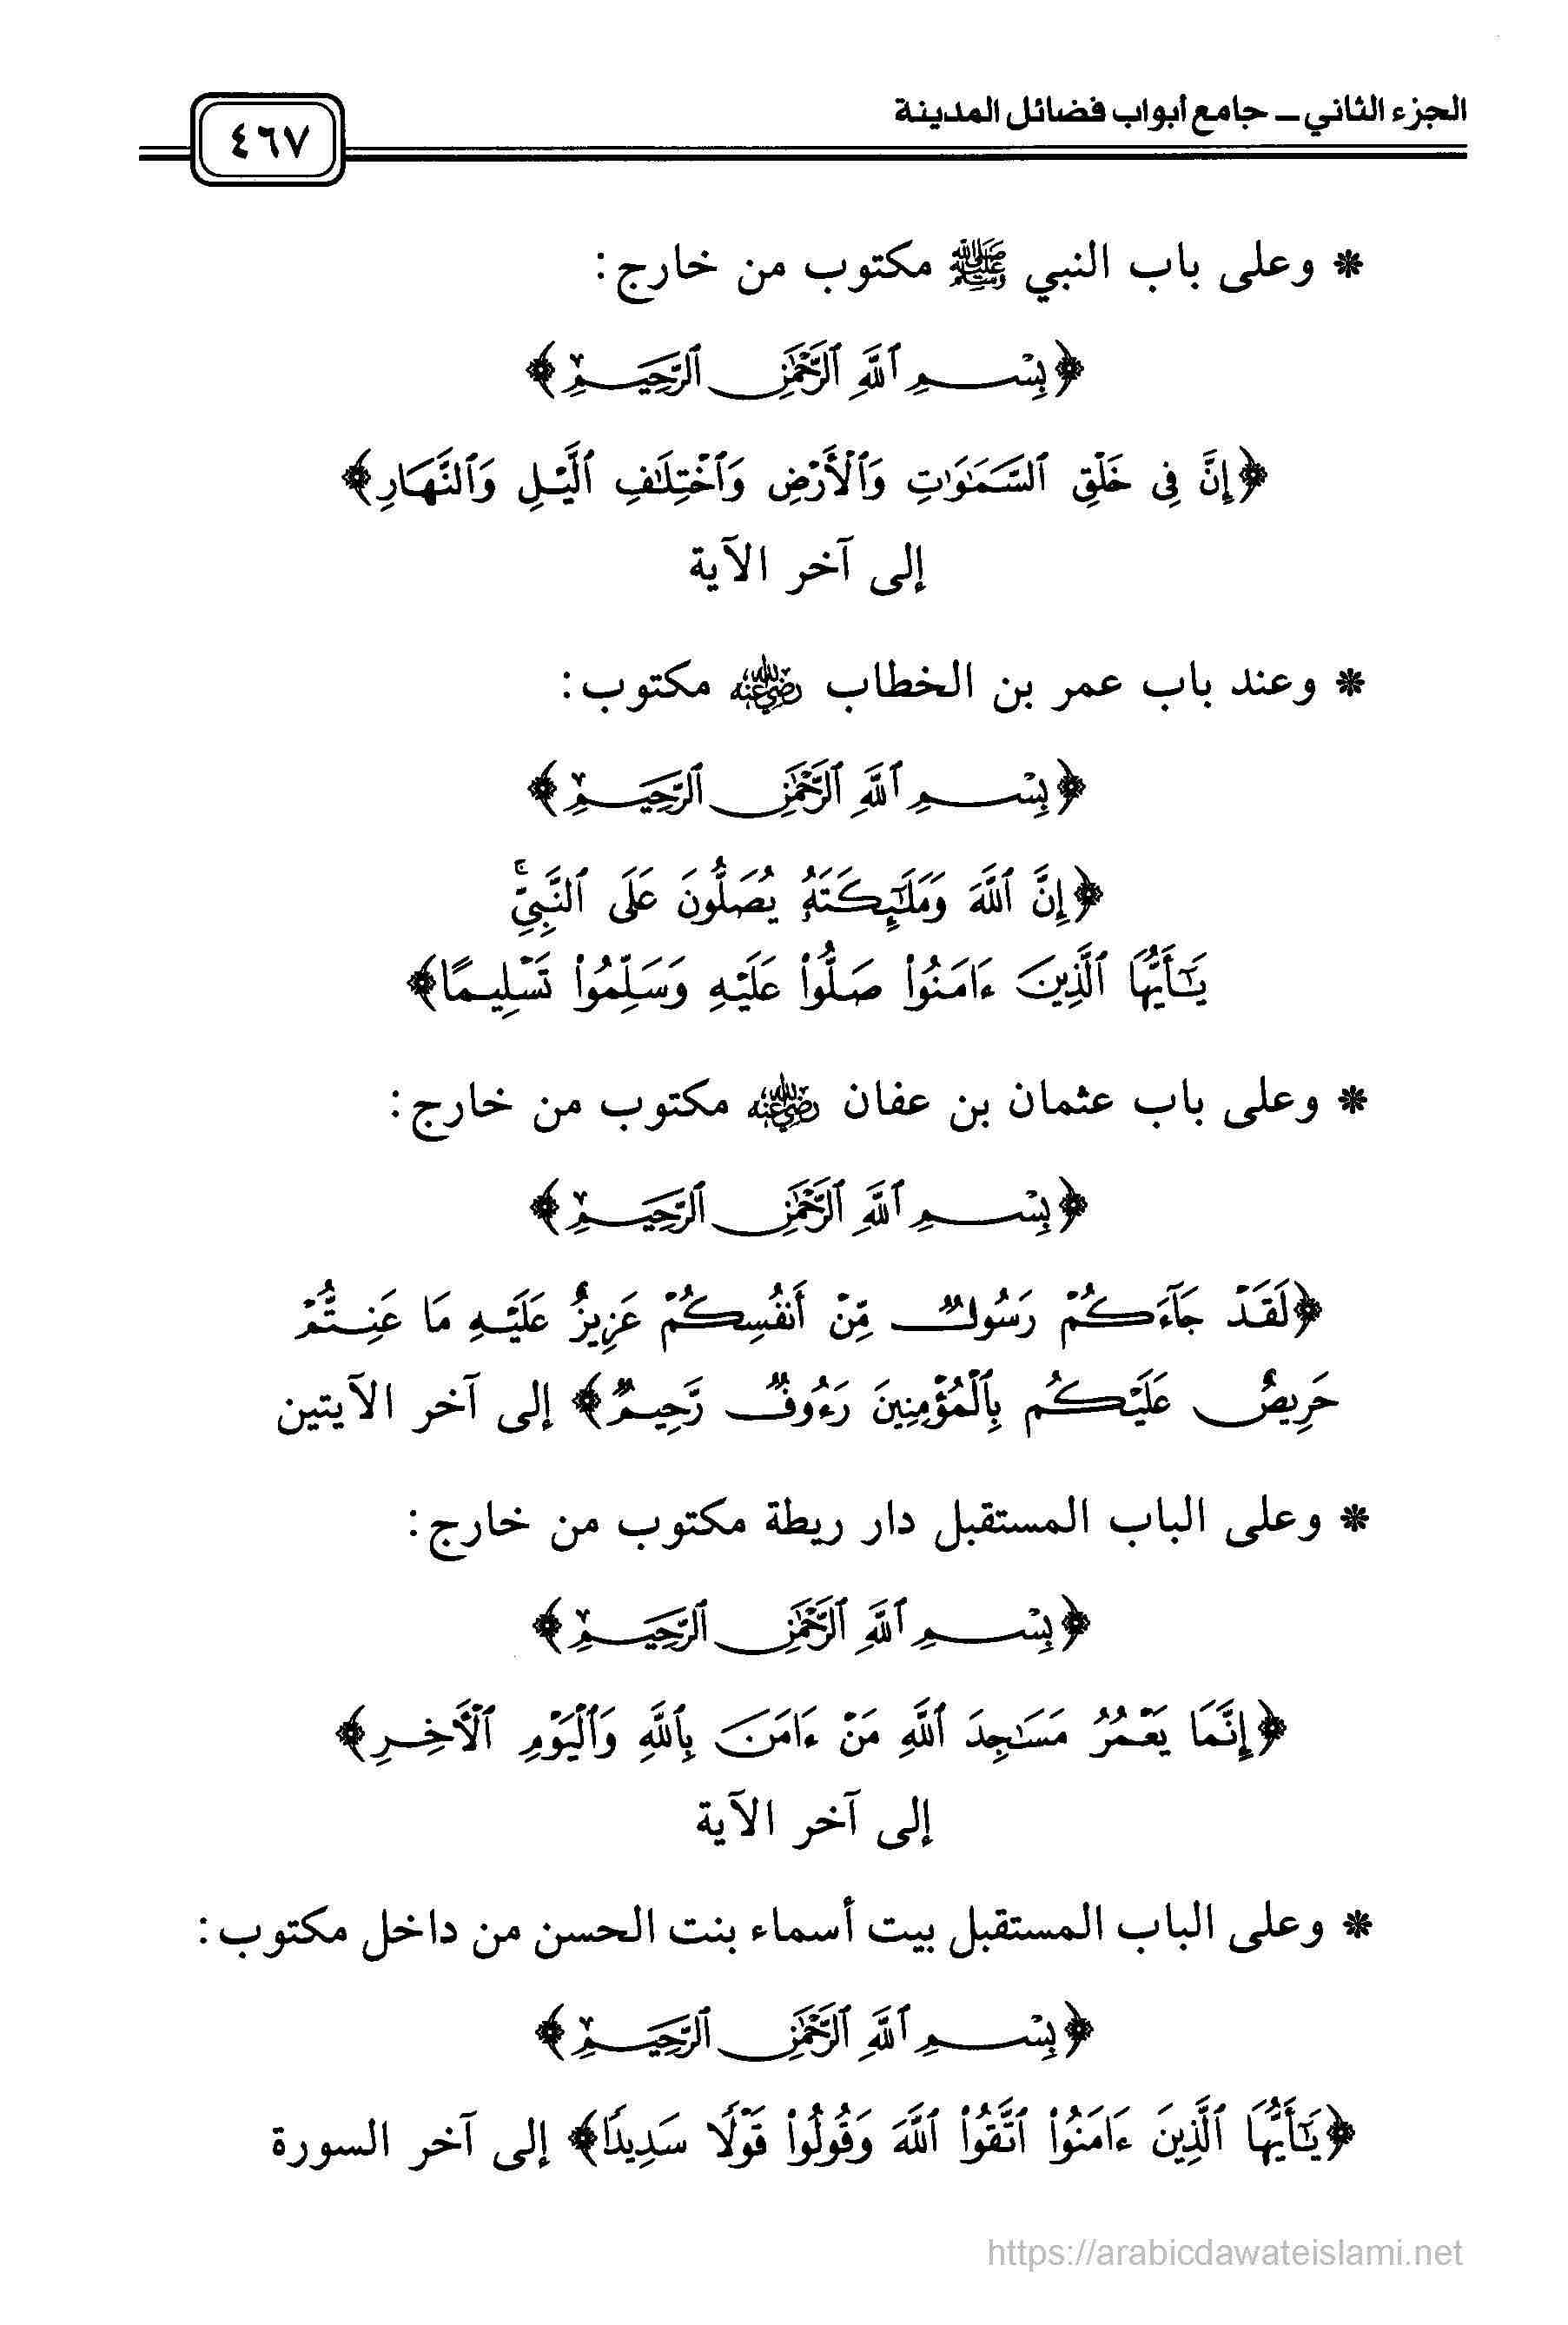 الجزء الثاني ــ جامع أبواب فضائل المدينة
٤٦٧
* وعلى باب النبي ﷺ مكتوب من خارج:
﴿بِسْمِ ٱللَّهِ ٱلرَّحْمَٰنِ ٱلرَّحِيمِ﴾
﴿إِنَّ فِى خَلْقِ ٱلسَّمَٰوَٰتِ وَٱلْأَرْضِ وَٱخْتِلَٰفِ ٱلَّيْلِ وَٱلنَّهَارِ﴾
إلى آخر الآية
* وعند باب عمر بن الخطاب رضي الله عنه مكتوب:
﴿بِسْمِ ٱللَّهِ ٱلرَّحْمَٰنِ ٱلرَّحِيمِ﴾
﴿إِنَّ ٱللَّهَ وَمَلَٰٓئِكَتَهُۥ يُصَلُّونَ عَلَى ٱلنَّبِىِّۚ
يَٰٓأَيُّهَا ٱلَّذِينَ ءَامَنُوا۟ صَلُّوا۟ عَلَيْهِ وَسَلِّمُوا۟ تَسْلِيمًا﴾
* وعلى باب عثمان بن عفان رضي الله عنه مكتوب من خارج:
﴿بِسْمِ ٱللَّهِ ٱلرَّحْمَٰنِ ٱلرَّحِيمِ﴾
﴿لَقَدْ جَآءَكُمْ رَسُولٌ مِّنْ أَنفُسِكُمْ عَزِيزٌ عَلَيْهِ مَا عَنِتُّمْ
حَرِيصٌ عَلَيْكُم بِٱلْمُؤْمِنِينَ رَءُوفٌ رَّحِيمٌ﴾ إلى آخر الآيتين
* وعلى الباب المستقبل دار ريطة مكتوب من خارج:
﴿بِسْمِ ٱللَّهِ ٱلرَّحْمَٰنِ ٱلرَّحِيمِ﴾
﴿إِنَّمَا يَعْمُرُ مَسَٰجِدَ ٱللَّهِ مَنْ ءَامَنَ بِٱللَّهِ وَٱلْيَوْمِ ٱلْأَخِرِ﴾
إلى آخر الآية
* وعلى الباب المستقبل بيت أسماء بنت الحسن من داخل مكتوب:
﴿بِسْمِ ٱللَّهِ ٱلرَّحْمَٰنِ ٱلرَّحِيمِ﴾
﴿يَٰٓأَيُّهَا ٱلَّذِينَ ءَامَنُوا۟ ٱتَّقُوا۟ ٱللَّهَ وَقُولُوا۟ قَوْلًا سَدِيدًا﴾ إلى آخر السورة
https://arabicdawateislami.net